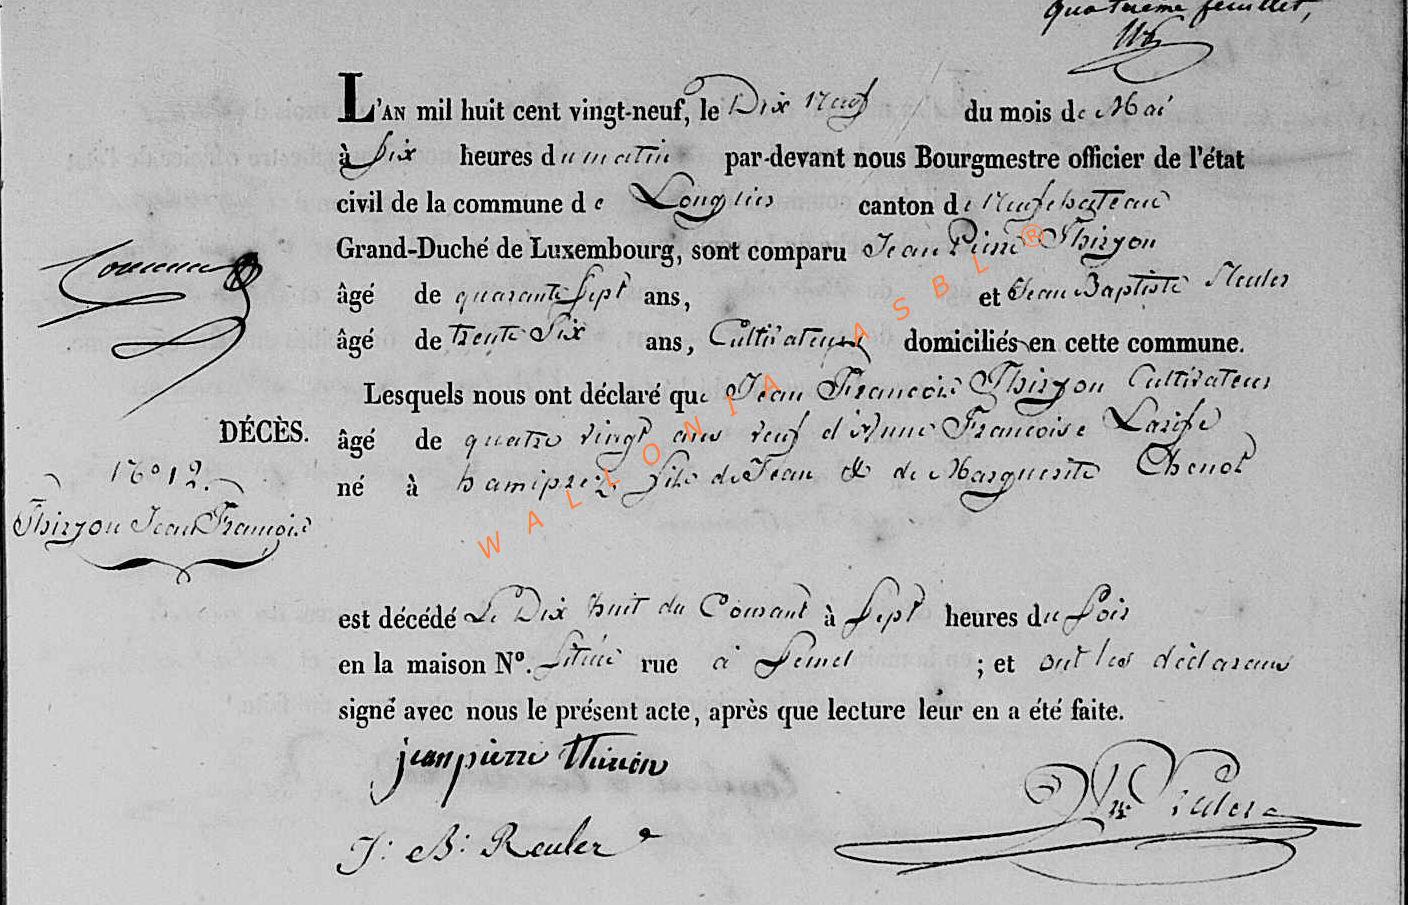 quatrième feuillet,
L'AN mil huit cent vingt-neuf, le Dix neuf du mois de Mai
à Six heures du matin par-devant nous Bourgmestre officier de l'état
civil de la commune de Longlier canton de Neufchateau
Grand-Duché de Luxembourg, sont comparu Jean Pierre Thiryon
âgé de quarante Sept ans, et Jean Baptiste Reuler
âgé de trente Six ans, Cultivateurs domiciliés en cette commune.
Lesquels nous ont déclaré que Jean François Thiryon Cultivateur
DÉCÈS.
âgé de quatre vingt ans veuf d'Anne Françoise
N° 12.
né à hamipré, fils de Jean & de Marguerite Chenot
Thiryon Jean François
est décédé Le Dix huit du Courant à Sept heures du Soir
en la maison N°. Située rue à Semel ; et ont les déclarans
signé avec nous le présent acte, après que lecture leur en a été faite.
jean pierre thirion
J: B: Reuler
WALLONIA ASBL ®